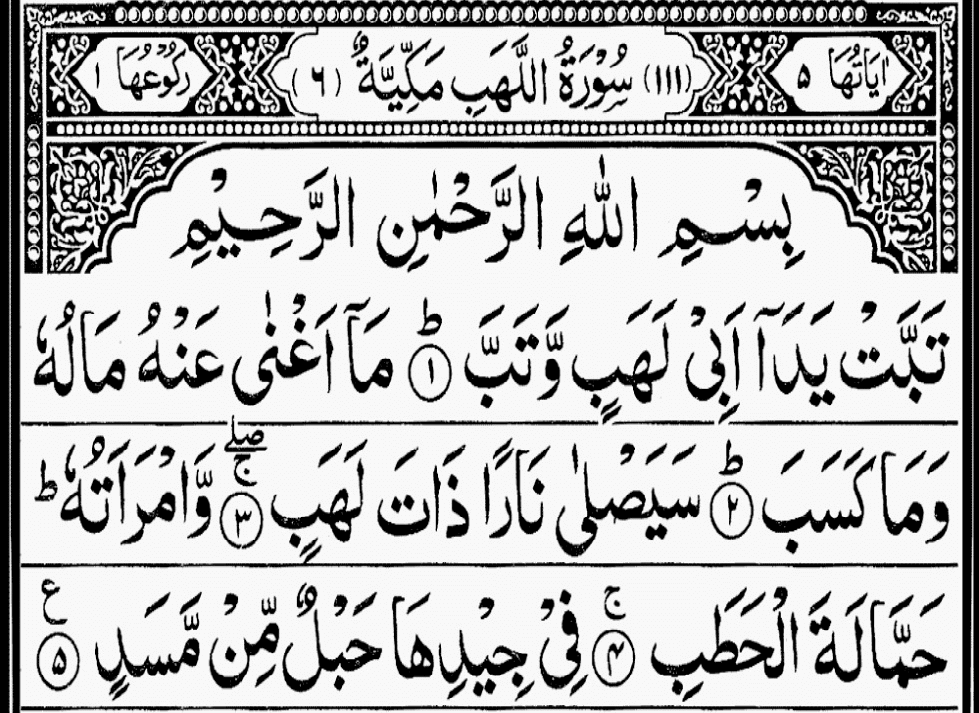 اٰیَاتُهَا ۵ (١١١) سُوْرَةُ اللَّهَبِ مَكِّیَّةٌ (٦) رُكُوْعُهَا ١
بِسْمِ اللّٰهِ الرَّحْمٰنِ الرَّحِیْمِ
تَبَّتْ یَدَاۤ اَبِیْ لَهَبٍ وَّتَبَّ ؕ﴿۱﴾ مَاۤ اَغْنٰی عَنْهُ مَالُهٗ
وَمَا كَسَبَ ؕ﴿۲﴾ سَیَصْلٰی نَارًا ذَاتَ لَهَبٍ ۚۖ﴿۳﴾ وَّامْرَاَتُهٗ ؕ
حَمَّالَةَ الْحَطَبِ ۚ﴿۴﴾ فِیْ جِیْدِهَا حَبْلٌ مِّنْ مَّسَدٍ ﴿۵﴾ ع